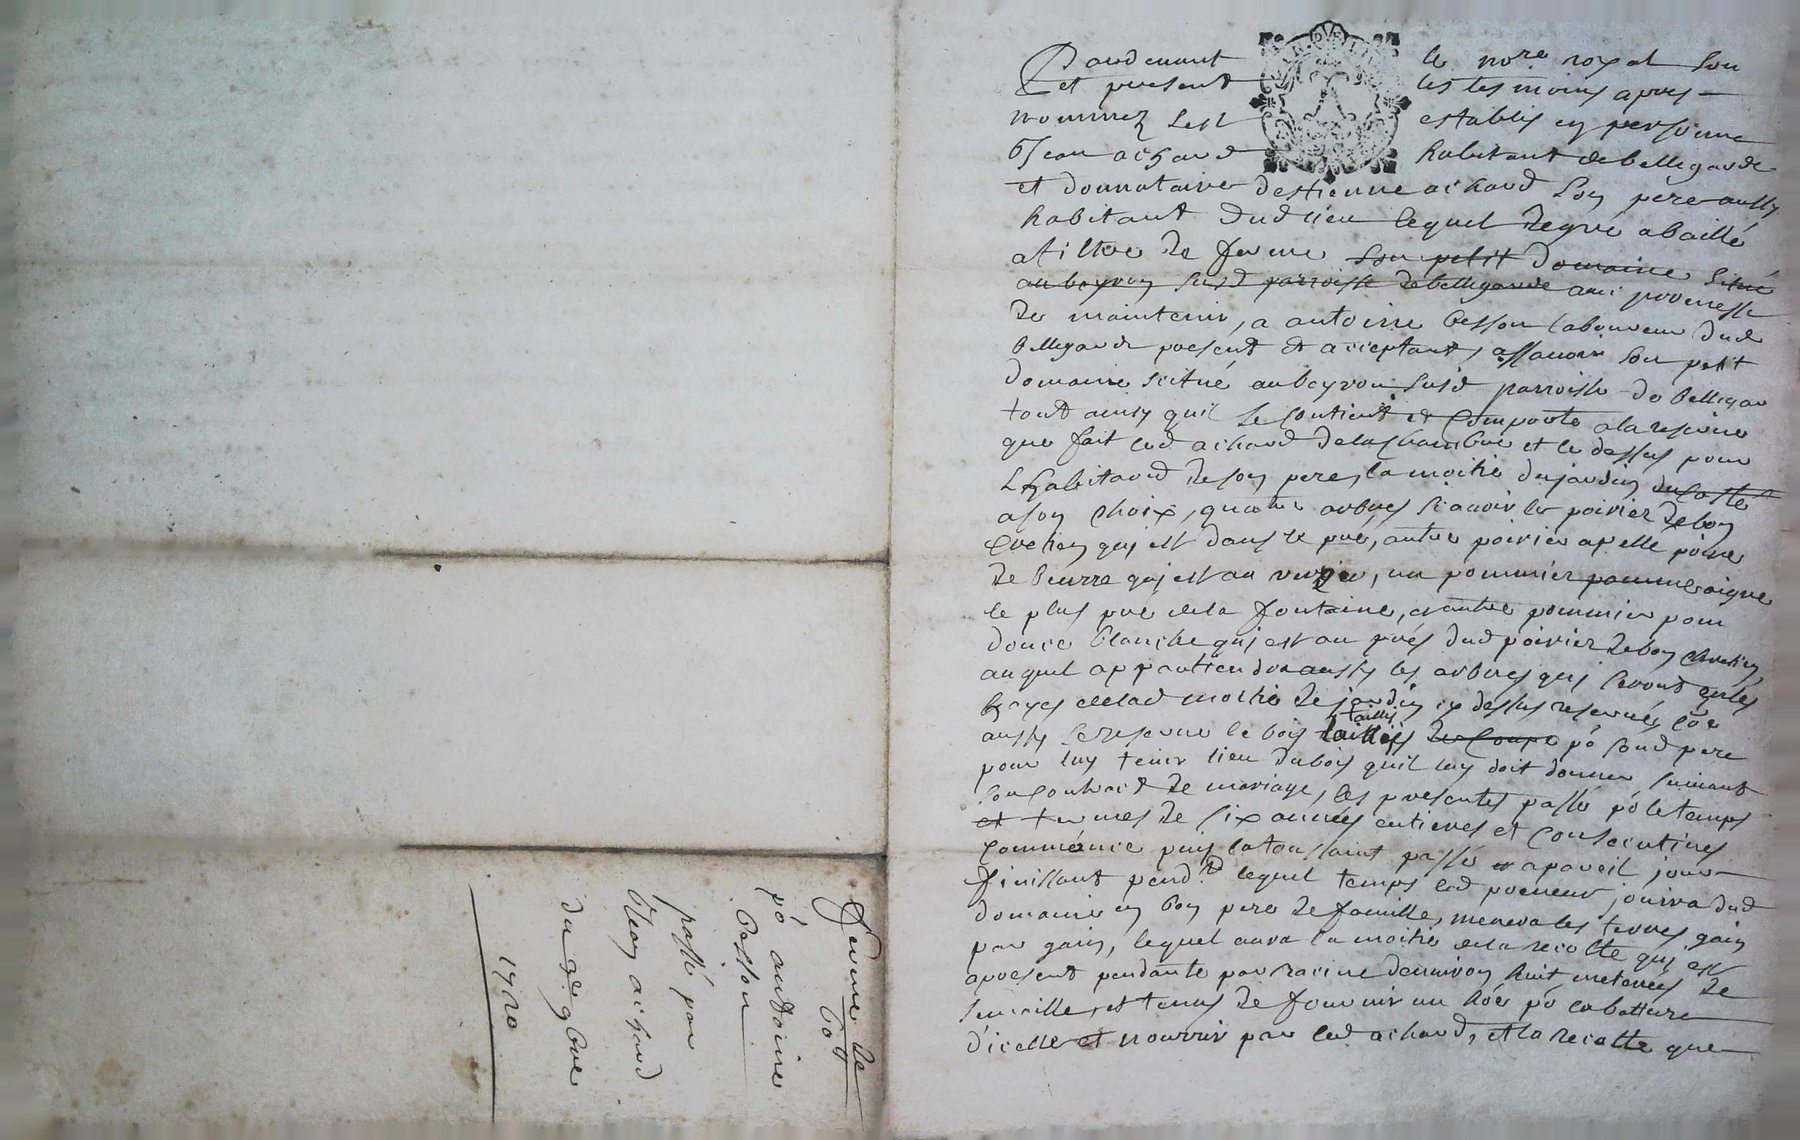 Pardevant le nore royal sou
et present les tesmoins apres
nommez sest establis en personne
Jean achard habitant de bellegarde
et donnataire destienne achard son pere aussy
habitant dud lieu lequel de gré a baillé
a tiltre de ferme son petit domaine situé
au boyron susd parroisse de bellegarde avec promesse
de maintenir, a antoine besson laboureur dud
bellegarde present et acceptant, assauoir son petit
domaine scitué au beyron susd parroisse de bellegar
tout ainsy quil se contient et comporte a la reserue
que fait led achard de la chambre et le dessus pour
lhabitaōn de son pere, la moitié du jardin du costé
a son choix, quatre arbres scauoir le poirier de bon
chretien qui est dans le pré, autre poirier apellé poire
de beurre qui est au verger, un pommier pomme aigre
le plus pres de la fontaine, et autre pommier pom
douce blanche qui est au prés dud poirier de bon chretien,
auquel appartiendra aussy les arbres qui seront ez les
hayes de lad moitié de jardin cy dessus reseruée, còe
aussy se reserue le bois taillis taillis de coupe pó sond pere
pour luy tenir lieu du bois quil luy doit donner suiuant
son contract de mariage, les presentes passé pó le temps
et termes de six années entieres et consecutives
commencé puis la toussaint passée et a pareil jour
finissant pend.t lequel temps led preneur jouira dud
domaine en bon pere de famille, menera les terres gain
par gain, lequel aura la moitié de la recolte qui est
apresent pendante par racine denuiron huit metanches de
semaille, et tenus de fournir un hóe pó la batture
d'icelle et nourrir par led achard, et la recolte que
ferme de
60ᵗᵗ
pó antoine
besson
passé par
Jean achard
du 9e 9bre
1720